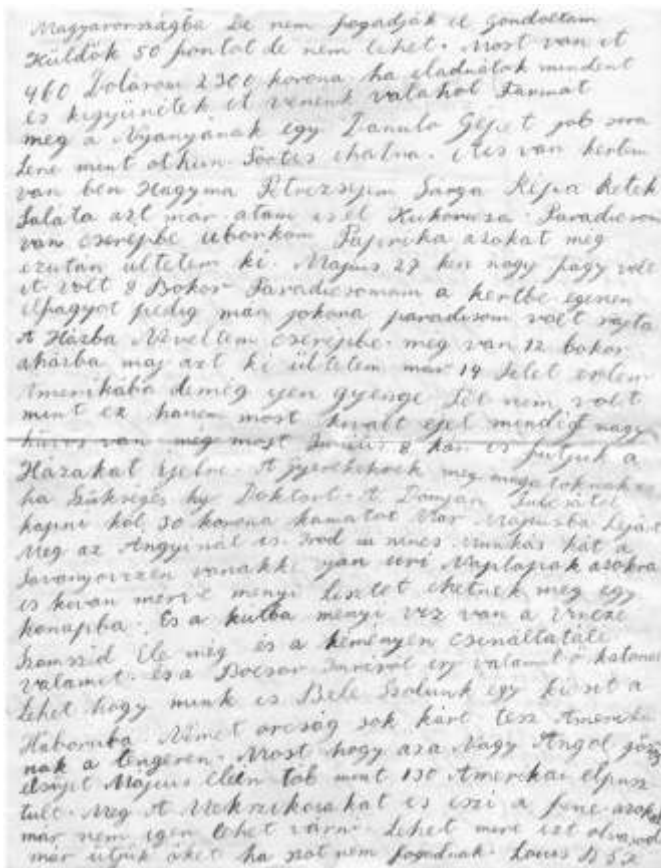 Magyarországba De nem fogadják el gondoltam
Küldök 50 fontot de nem lehet. Most van it
460 Dolárom 2300 korona ha eladnátok mindent
és kigyünétek it venénk valahol Farmat
meg a Nyanyának egy Gépet job sora
lene mint othun. van kertem
van ben Hagyma Petrezsijem Sárga Répa Retek
Saláta azt már is él Kukorusa. Paradicsom
van cserépbe uborkám Paprika azokat még
ezután ültetem ki. Május 27 ken nagy fagy volt
it volt 8 Bokor Paradicsomam a kertbe egészen
elfagyot pedig mán jokora paradisom volt rajta
A Házba Neveltem cserépbe meg van 12 bokor
aházba maj azt ki ültetem már 14 Telet értem
Amerikába de még gyenge Tél nem volt
mint ez hanem most kivált éjel mindég nagy
hüvös van még most Június 8 kán is futjuk a
Házakat éjelre. A gyerekeknek
ha Szükséges hj Doktort. A Damján
kapni kel 30 korona kamatot Már Májusba lejárt
Meg az Angyinál is Irod nincs Munkás hát a
Savanyóvizen vanakki uri Naplopiak azokra
is kivan mérve menyi lisztet ehetnek meg egy
honapba. És a kutba menyi viz van a Vincze
Szomszéd Éle még és a kéményen csináltatále
valamit. és a Bocsor irj valamit ő katona
Lehet hogy mink is Bele Szolunk egy kicsit a
Háboruba. Német ország sok kárt tesz Amerika
nak a tengeren. Most hogy aza Nagy Angol
elsüjet Május elein tob mint 130 Amerikai elpusz
tult. Meg A is eszi a fene azokat
már nem igen lehet várni. Lehet mire ezt olvasod
már ütjük öket ha szot nem fogadnak.